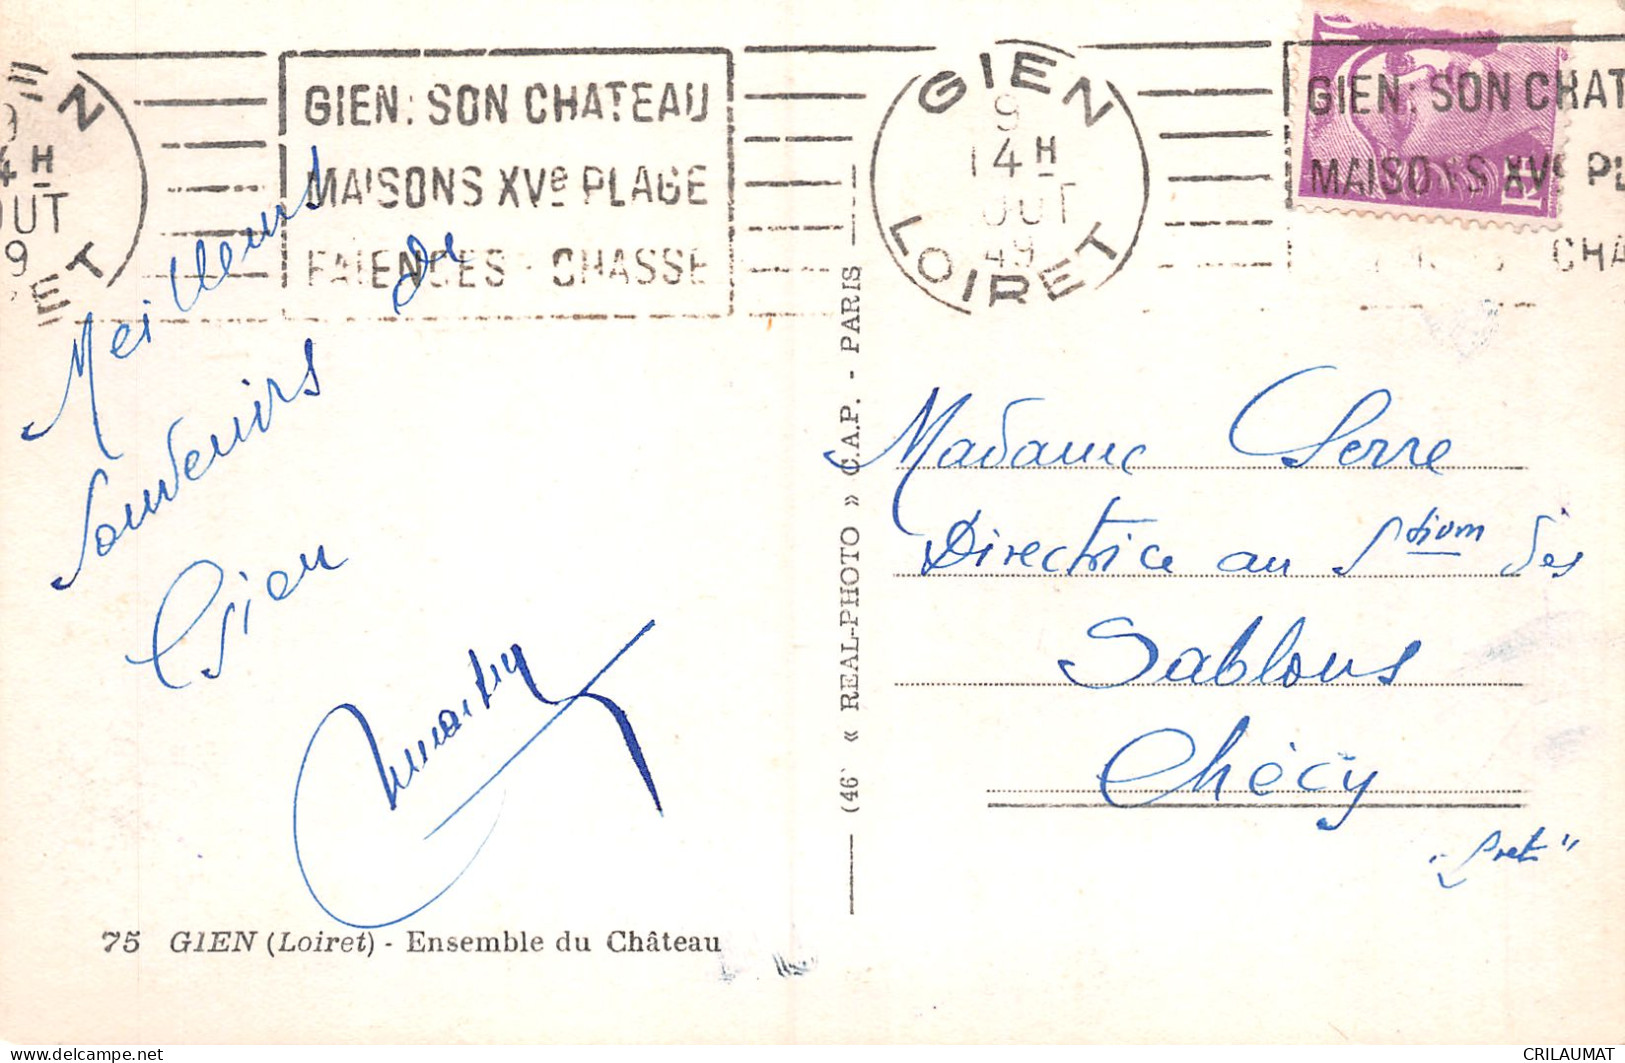 GIEN
9
14H
OUT
49
LOIRET
GIEN: SON CHATEAU
MAISONS XVe PLAGE
FAIENCES - CHASSE
GIEN: SON CHAT
MAISONS XVe PL
CHA
EN
4H
OUT
9
ET
Meilleurs
souvenirs de
Gien
75 GIEN (Loiret) - Ensemble du Château
(46) « REAL-PHOTO » C.A.P. - PARIS
Madame Serre
Directrice au Stium des
Sablons
Chécy
Loiret
CRILAUMAT